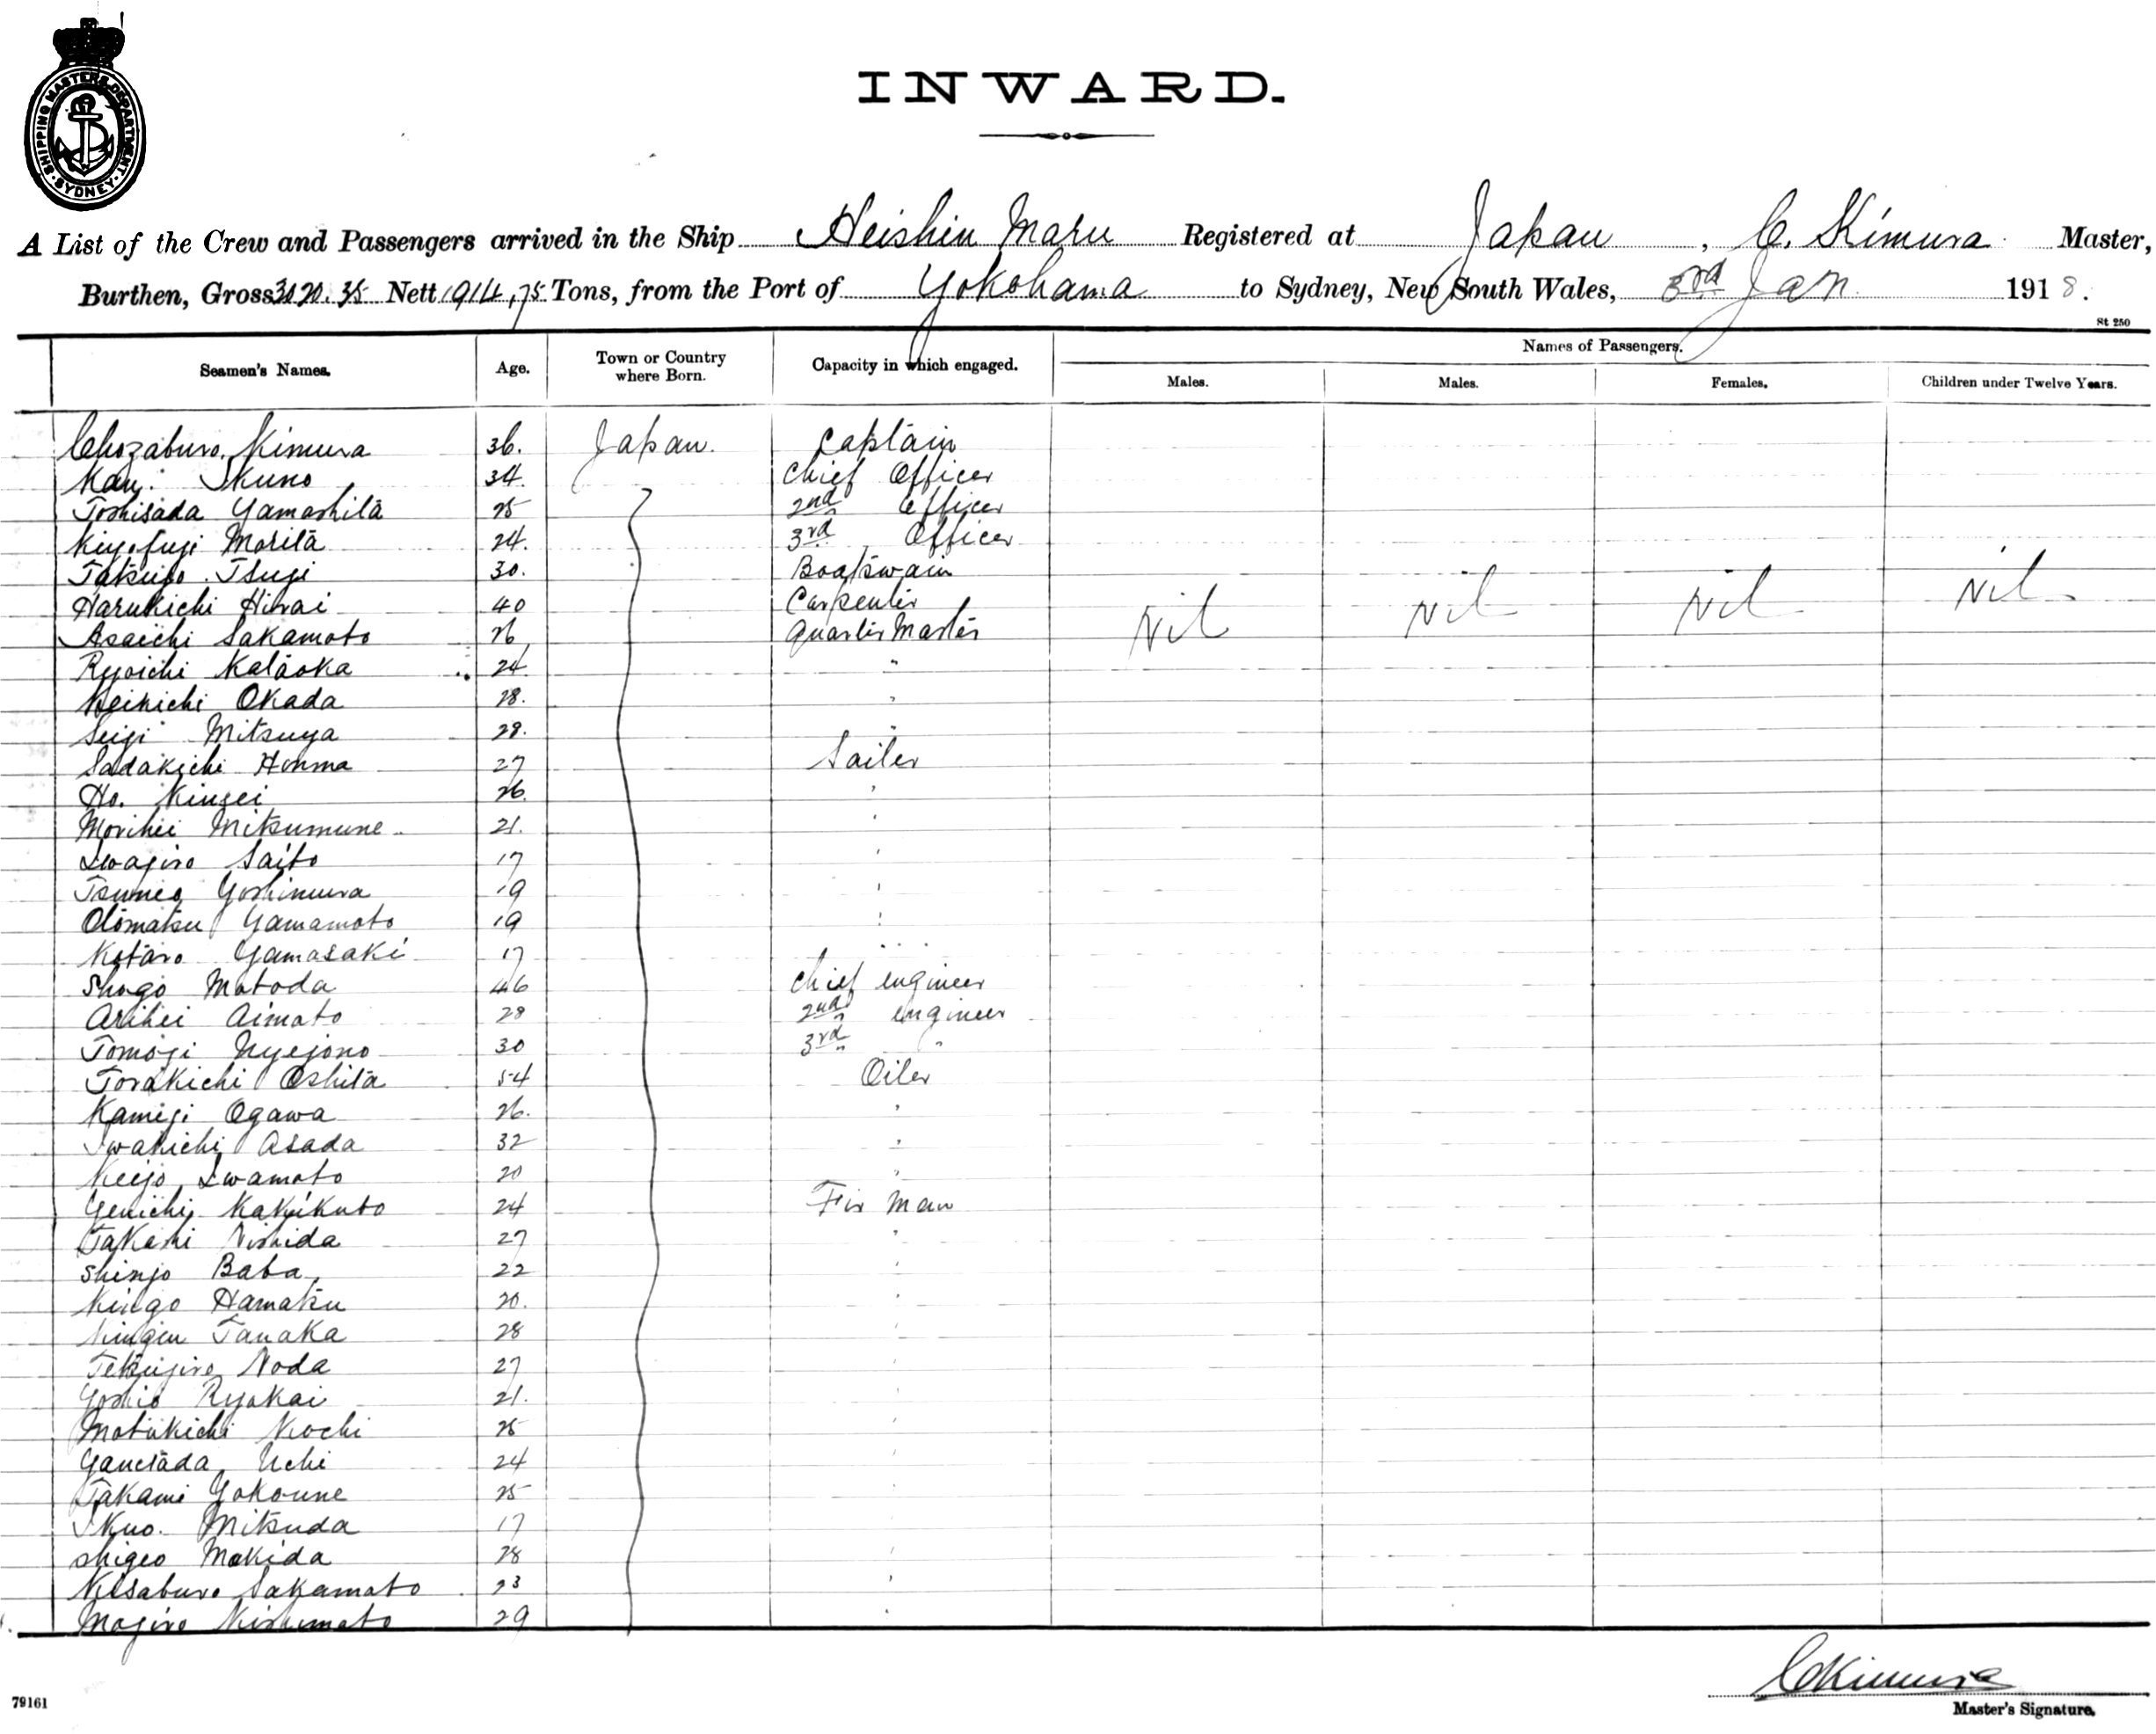 SHIPPING MASTERS DEPARTMENT
SYDNEY
INWARD.
A List of the Crew and Passengers arrived in the Ship Heishin Maru Registered at Japan, C. Kimura Master,
Burthen, Gross 3120.35 Nett 1914,75 Tons, from the Port of Yokohama to Sydney, New South Wales, 3rd Jan 1918.
St 250
Seamen's Names. Age. Town or Country where Born. Capacity in which engaged. Names of Passengers.
Males. Males. Females. Children under Twelve Years.
Chozaburo Kimura 36. Japan. Captain
Kanj. Ikuno 34. Chief Officer
Toshisada Yamashita 25 2nd Officer
Kiyofuji Morita 24. 3rd Officer
Takujo Tsuji 30. Boatswain
Harukichi Hirai 40 Carpenter Nil Nil Nil Nil
Asaichi Sakamoto 26 Quarter Master
Ryoichi Kataoka 24. "
Keikichi Okada 28. "
Seiji Mitsuya 29. "
Sadakichi Honma 27 Sailer
Ho. Kinsei 26. "
Morihei Mitsumune 21. "
Iwajiro Saito 17 "
Tsuneo Yoshimura 19 "
Otomatsu Yamamoto 19 "
Kotaro Yamasaki 17 "
Shogo Motoda 46 Chief engineer
Arihei Aimoto 28 2nd engineer
Tomoji Uyejono 30 3rd "
Torakichi Oshita 54 Oiler
Kameji Ogawa 26. "
Iwakichi Asada 32 "
Keijo Iwamoto 20 "
Genichi Kakikubo 24 Fir man
Takeshi Nishida 27 "
Shinjo Baba 22 "
Kingo Hamatsu 20. "
Tanaka 28 "
Tetsujiro Noda 27 "
Yoshio Ryokai 21. "
Motokichi Kochi 25 "
Uchi 24 "
Takami Yokoune 25 "
Ikuo. Mitsuda 17 "
Shigeo Makida 28 "
Kisaburo Sakamoto 23 "
Mojiro Kishimoto 29 "
C Kimura
Master's Signature.
79161